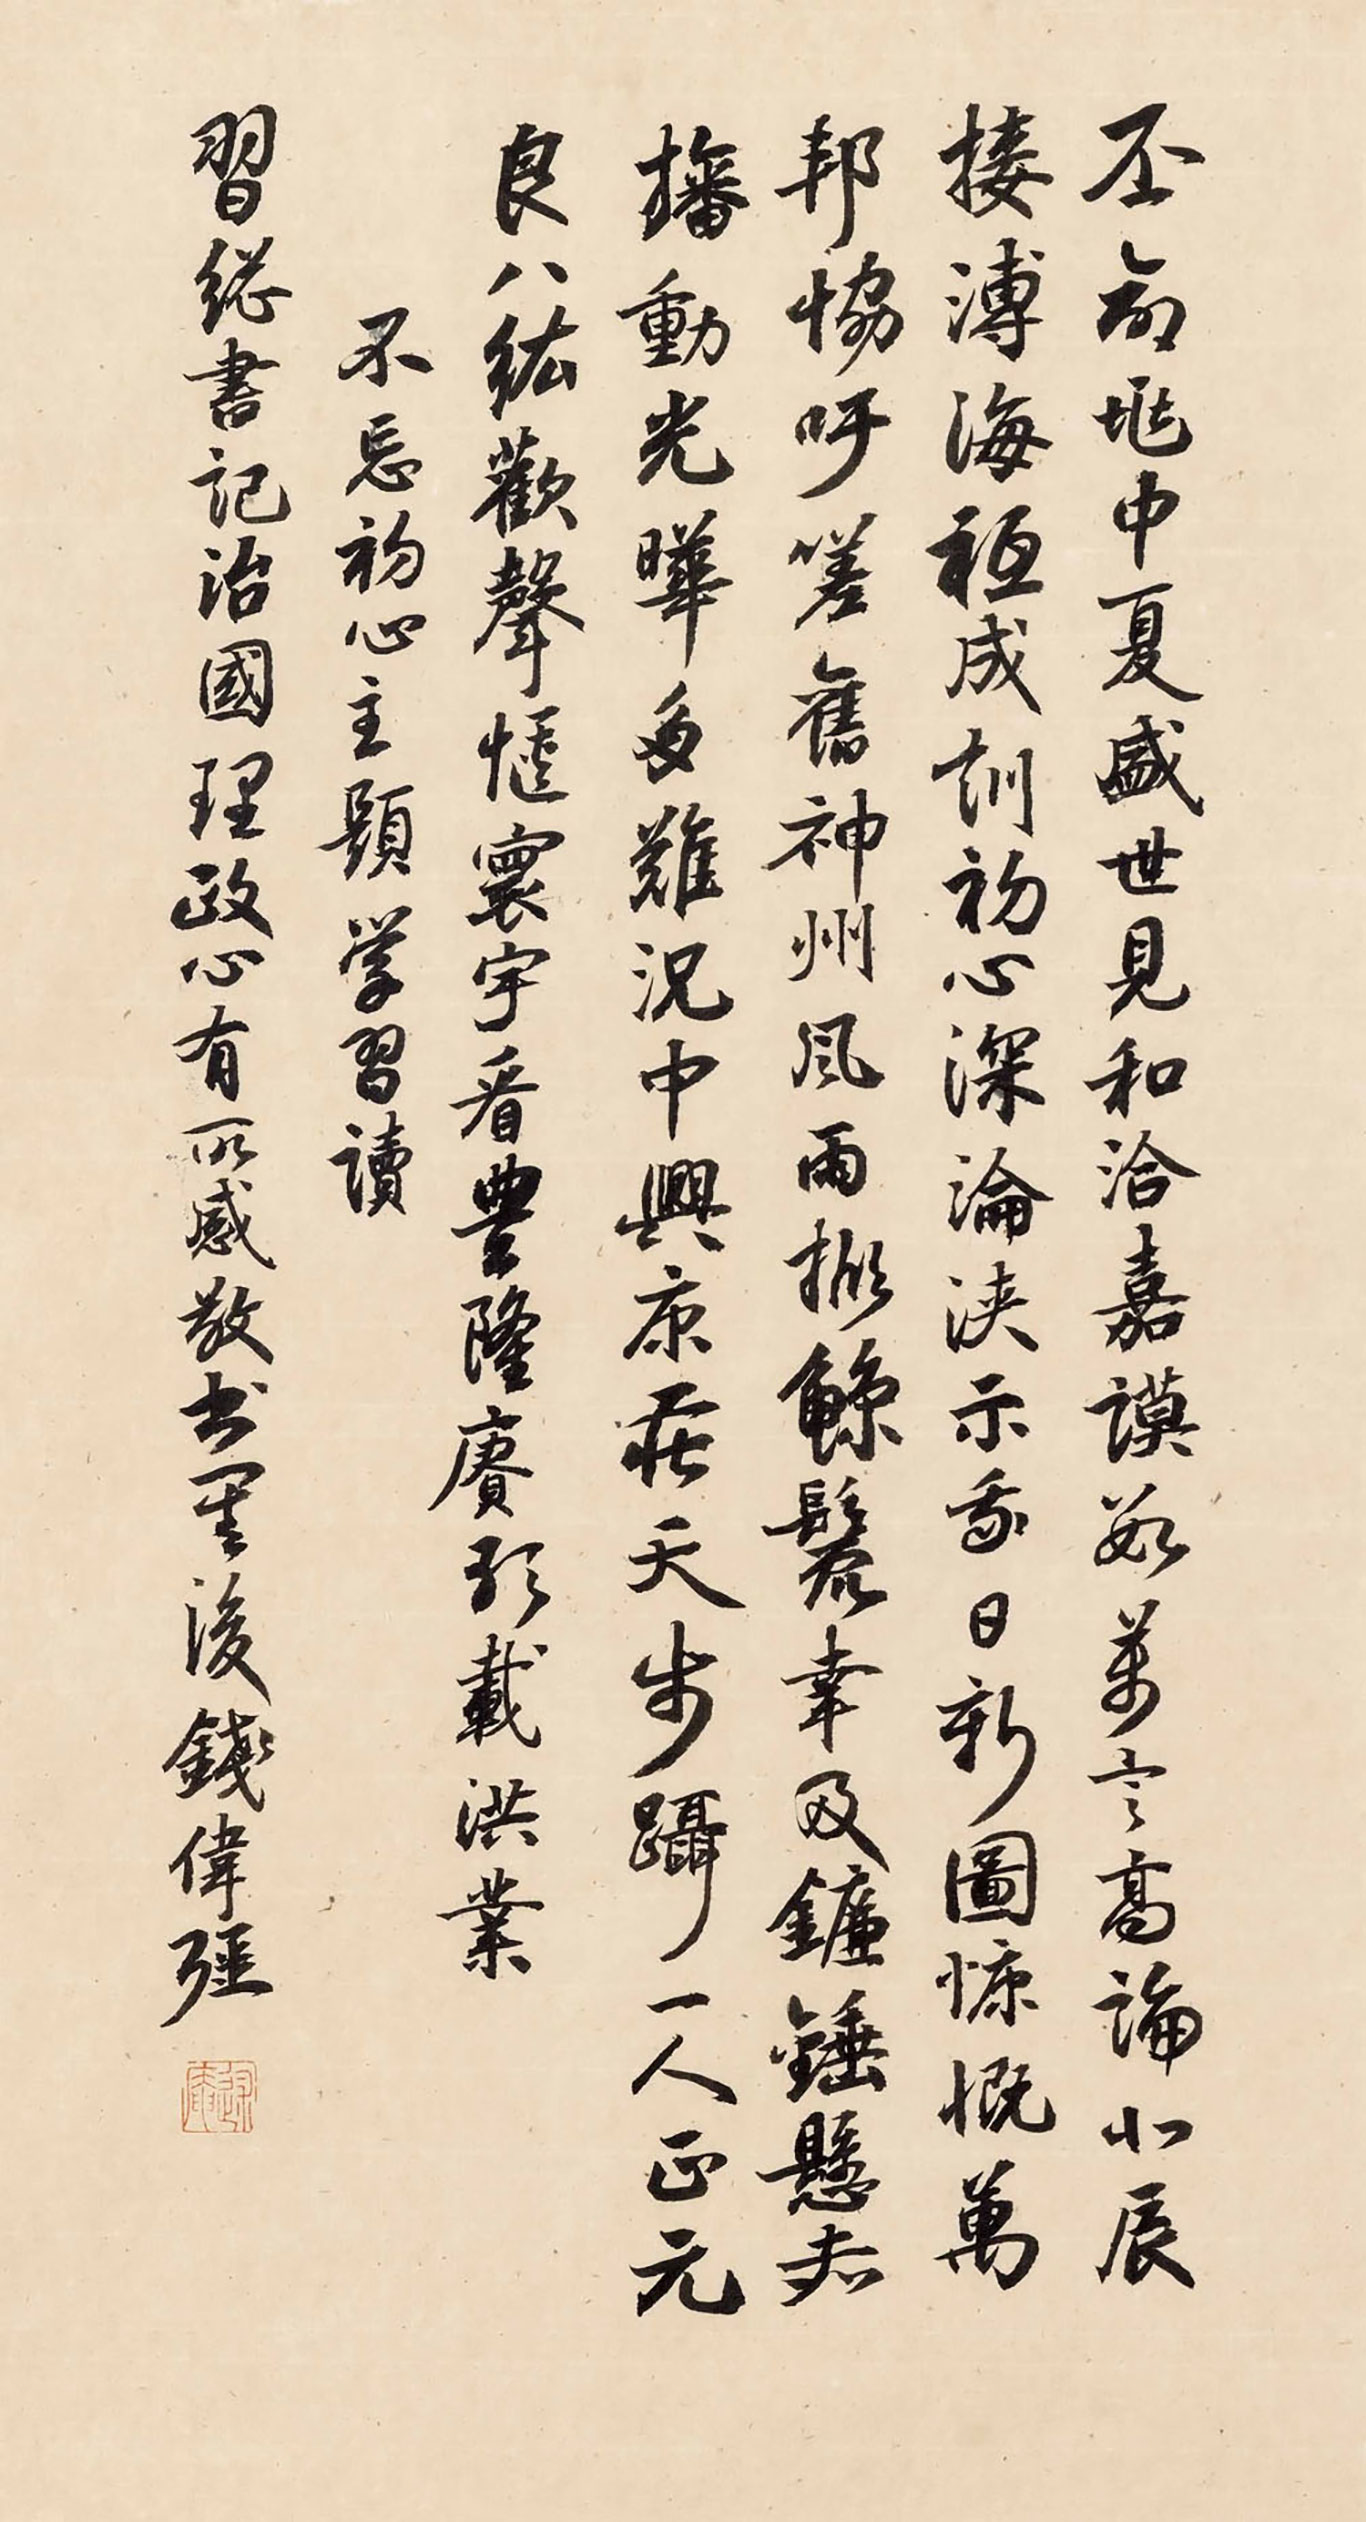 丕命烝中夏盛世見和洽嘉謨敷萬言高論北辰
接溥海祗成訓初心深淪浹示我日新圖慷慨萬
邦協吁嗟舊神州風雨摐鯨鬣幸及鐮錘懸赤
旛動光曄多難況中興康莊天步躡一人正元
良八紘歡聲愜寰宇看豐隆賡歌載洪業
不忘初心主題學習讀
習總書記治國理政心有所感敬书墨後錢偉彊